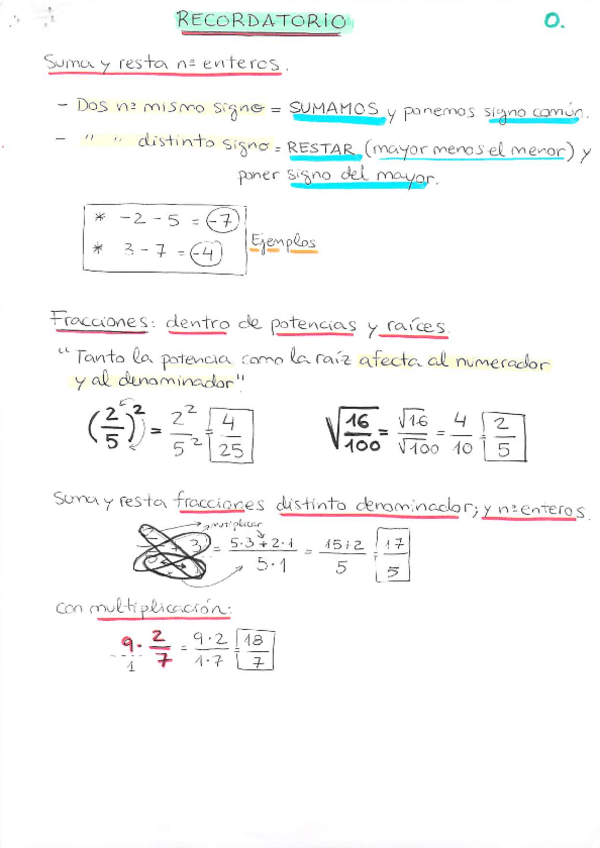 RECORDATORIO 0.
Suma y resta nº enteros.
- Dos nº mismo signo = SUMAMOS y ponemos signo común.
- " " distinto signo = RESTAR (mayor menos el menor) y
poner signo del mayor.
* -2 - 5 = -7
* 3 - 7 = -4
Ejemplos
Fracciones: dentro de potencias y raíces.
"Tanto la potencia como la raíz afecta al numerador
y al denominador".
(2/5)² = 2²/5² = 4/25 √(16/100) = √16/√100 = 4/10 = 2/5
Suma y resta fracciones distinto denominador; y nº enteros.
multiplicar
+ 3 = 5·3+2·1 / 5·1 = 15+2 / 5 = 17/5
con multiplicación:
9/1 · 2/7 = 9·2 / 1·7 = 18/7